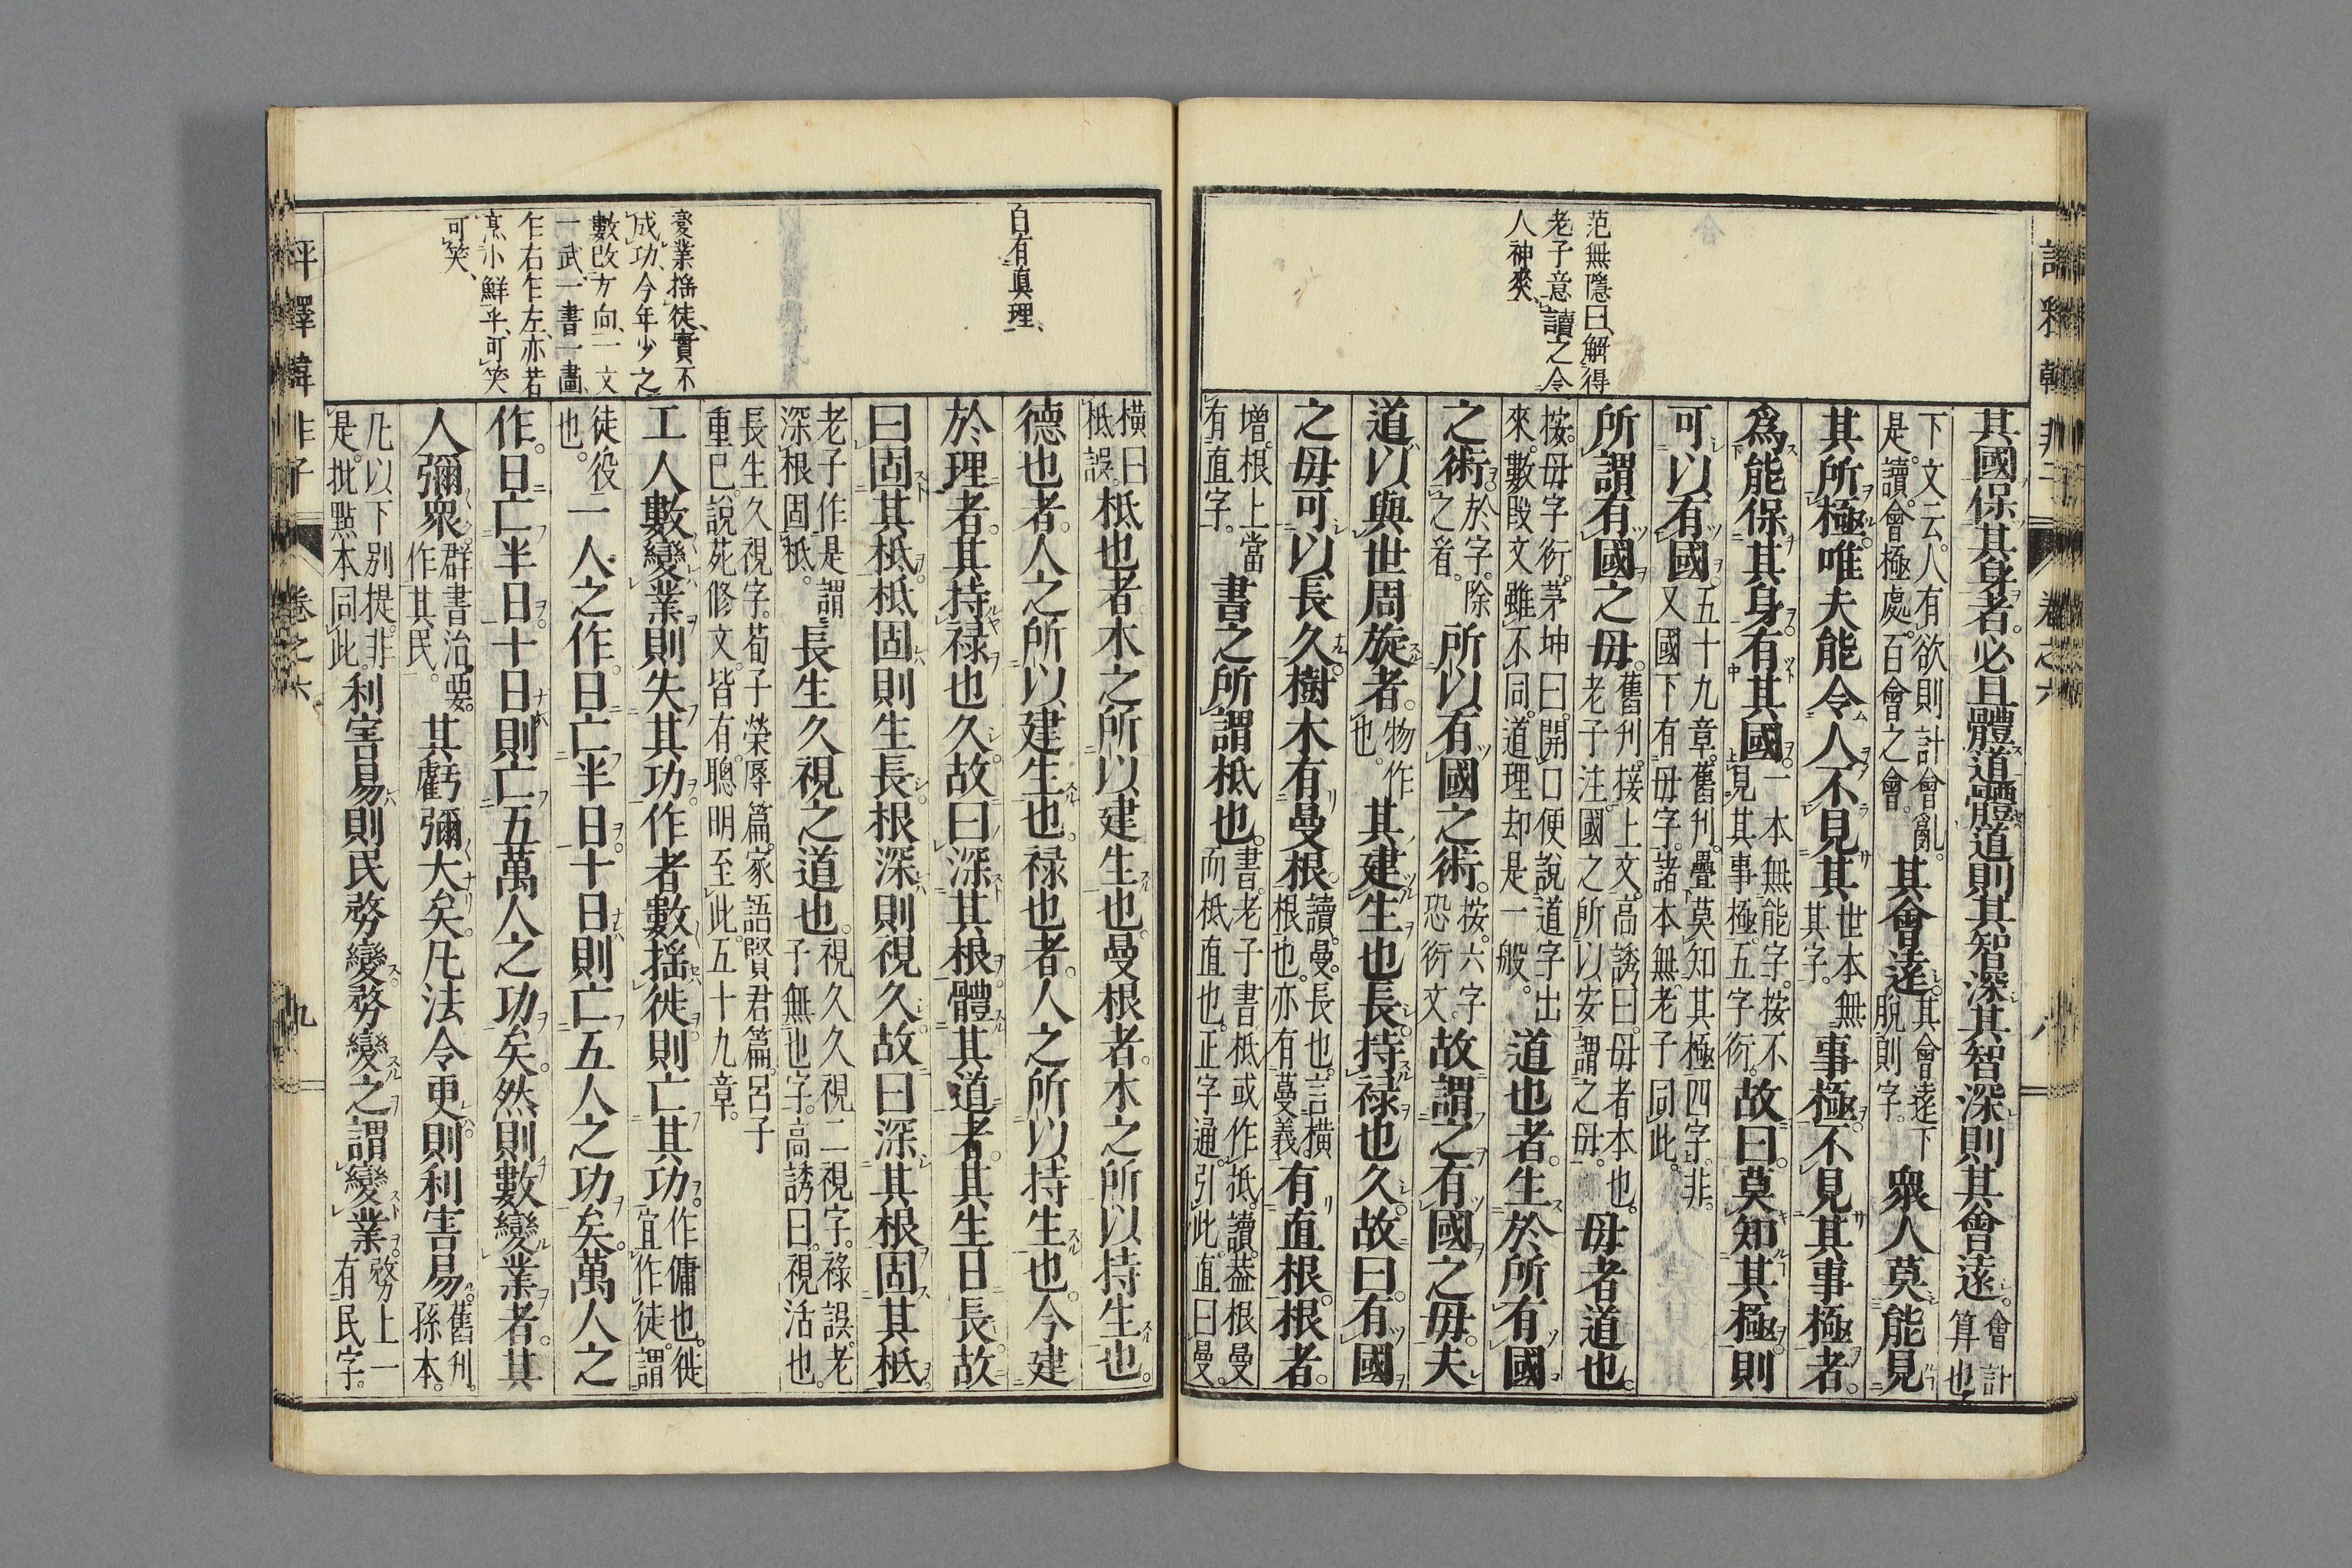 范無隱曰、解得
老子意、讀之令
人神爽、
其國保其身者。必且體道。體道則其智深。其智深則其會遠。會計算也
下文云。人有欲則計會亂。是。讀。會極處。百會之會。其會遠。其會遠下脫則字。衆人莫能見
其所極。唯夫能令人不見其世本無其字。事極。不見其事極者。
爲能保其身。有其國。一本無能字。按不見其事極。五字衍。故曰。莫知其極。則
可以有國。五十九章。舊刊。疊莫知其極四字。非。又國下有毋字。諸本無。老子同此。
所謂有國之毋。舊刊。接上文。高誘曰。毋者本也。老子注。國之所以安。謂之毋。毋者道也。
按。毋字衍。茅坤曰。開口便說道字出來。數段文雖不同。道理却是一般。道也者。生於所有國
之術。於字。除之看。所以有國之術。按。六字恐衍文。故謂之有國之毋。夫
道以與世周旋者。物作也。其建生也長。持祿也久。故曰。有國
之毋。可以長久。樹木有曼根。讀。曼。長也。言橫根也。亦有蔓義。有直根。根者。
增。根上當有直字。書之所謂柢也。書。老子書。柢或作抵。讀。葢根曼而柢直也。正字通。引此。直曰曼。
評釋韓非子　卷之六　八
自有眞理、
變業搖徒、實不
成功、今年少之
數改方向、一文
一武、一書一畫、
乍右乍左、亦若
烹小鮮乎、可笑
可笑、
橫曰柢誤。柢也者。木之所以建生也。曼根者。木之所以持生也。
德也者。人之所以建生也。祿也者。人之所以持生也。今建
於理者。其持祿也久。故曰。深其根。體其道者。其生日長。故
曰。固其柢。柢固則生長。根深則視久。故曰。深其根。固其柢。
老子作是謂深根固柢。長生久視之道也。視久久視二視字。祿誤。老子無也字。高誘曰。視活也。
長生久視字。荀子榮辱篇。家語賢君篇。呂子重巳。說苑修文。皆有。聰明至此。五十九章。
工人數變業則失其功。作者數搖徙則亡其功。作傭也。徙宜作徒。謂
徒役也。一人之作。日亡半日。十日則亡五人之功矣。萬人之
作。日亡半日。十日則亡五萬人之功矣。然則數變業者。其
人彌衆。群書治要。作其民。其虧彌大矣。凡法令更則利害易。舊刊。孫本。
凡以下別提。非是。批點本同此。利害易則民務變。務變之謂變業。務上一有民字。
評釋韓非子　卷之六　九